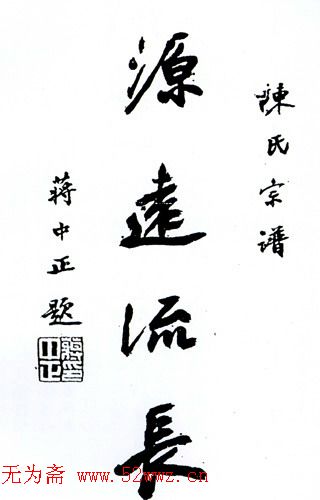 陳氏宗譜
源遠流長
蔣中正題
無为斋 www.52wwz.cn 欢迎您